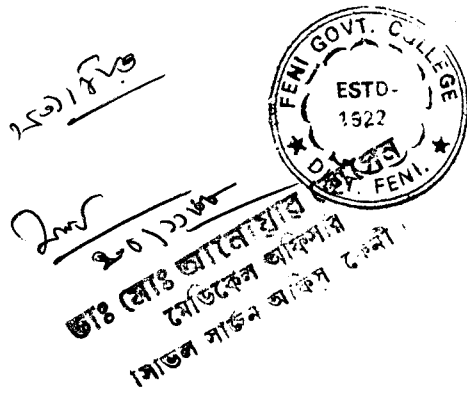 সত্যায়িত
FENI GOVT. COLLEGE
ESTD-
1922
DIST. FENI.
ডাঃ মোঃ আনোয়ার হোসেন
মেডিকেল অফিসার
সিভিল সার্জন অফিস ফেনী।